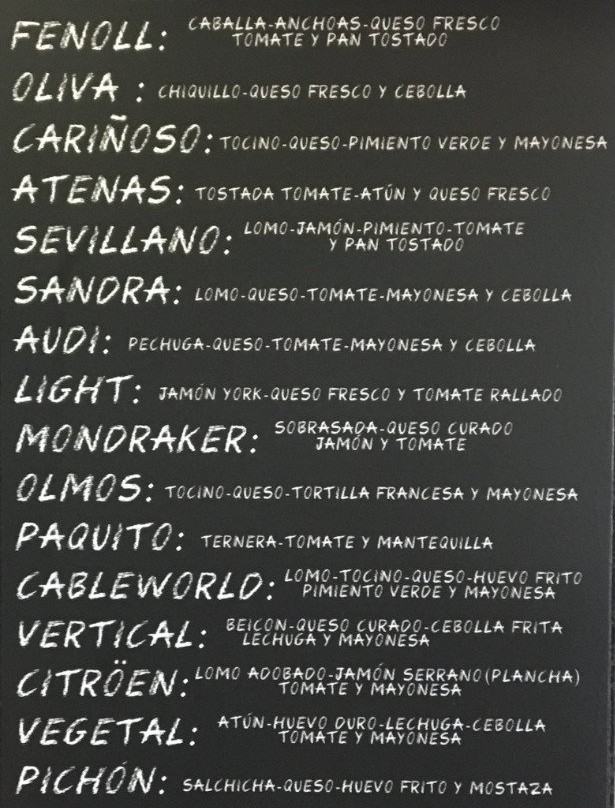 FENOLL: CABALLA-ANCHOAS-QUESO FRESCO
TOMATE Y PAN TOSTADO
OLIVA : CHIQUILLO-QUESO FRESCO Y CEBOLLA
CARIÑOSO: TOCINO-QUESO-PIMIENTO VERDE Y MAYONESA
ATENAS: TOSTADA TOMATE-ATÚN Y QUESO FRESCO
SEVILLANO: LOMO-JAMÓN-PIMIENTO-TOMATE
Y PAN TOSTADO
SANDRA: LOMO-QUESO-TOMATE-MAYONESA Y CEBOLLA
AUDI: PECHUGA-QUESO-TOMATE-MAYONESA Y CEBOLLA
LIGHT: JAMÓN YORK-QUESO FRESCO Y TOMATE RALLADO
MONDRAKER: SOBRASADA-QUESO CURADO
JAMÓN Y TOMATE
OLMOS: TOCINO-QUESO-TORTILLA FRANCESA Y MAYONESA
PAQUITO: TERNERA-TOMATE Y MANTEQUILLA
CABLEWORLD: LOMO-TOCINO-QUESO-HUEVO FRITO
PIMIENTO VERDE Y MAYONESA
VERTICAL: BEICON-QUESO CURADO-CEBOLLA FRITA
LECHUGA Y MAYONESA
CITRÖEN: LOMO ADOBADO-JAMÓN SERRANO(PLANCHA)
TOMATE Y MAYONESA
VEGETAL: ATÚN-HUEVO DURO-LECHUGA-CEBOLLA
TOMATE Y MAYONESA
PICHÓN: SALCHICHA-QUESO-HUEVO FRITO Y MOSTAZA